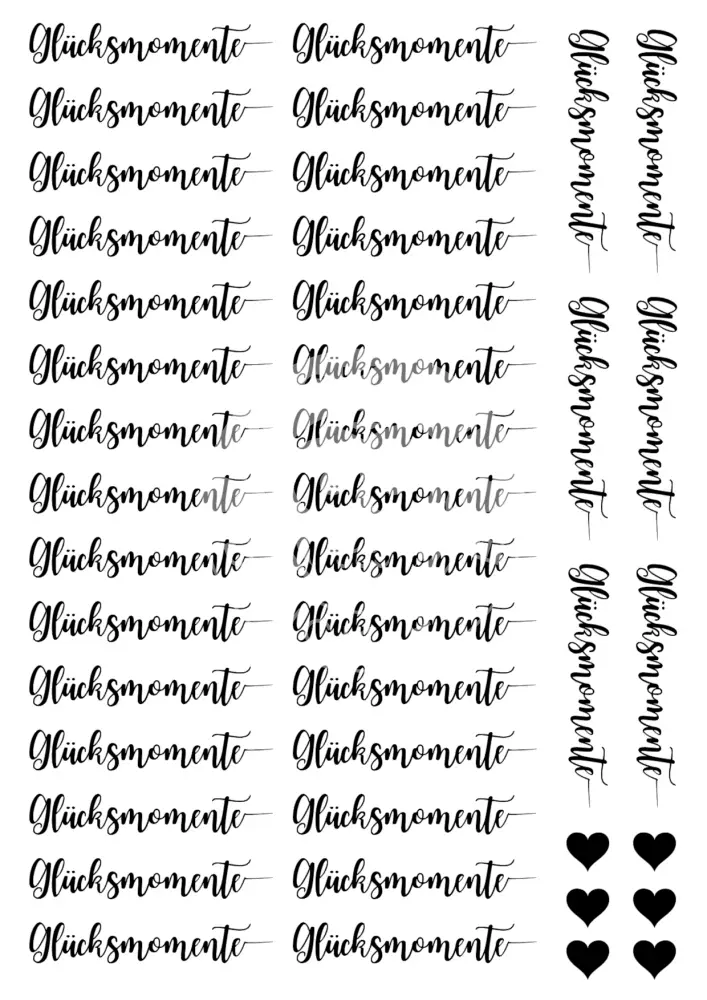 Glücksmomente Glücksmomente
Glücksmomente Glücksmomente
Glücksmomente Glücksmomente
Glücksmomente Glücksmomente
Glücksmomente Glücksmomente
Glücksmomente Glücksmomente
Glücksmomente Glücksmomente
Glücksmomente Glücksmomente
Glücksmomente Glücksmomente
Glücksmomente Glücksmomente
Glücksmomente Glücksmomente
Glücksmomente Glücksmomente
Glücksmomente Glücksmomente
Glücksmomente Glücksmomente
Glücksmomente Glücksmomente
Glücksmomente
Glücksmomente
Glücksmomente
Glücksmomente
Glücksmomente
Glücksmomente